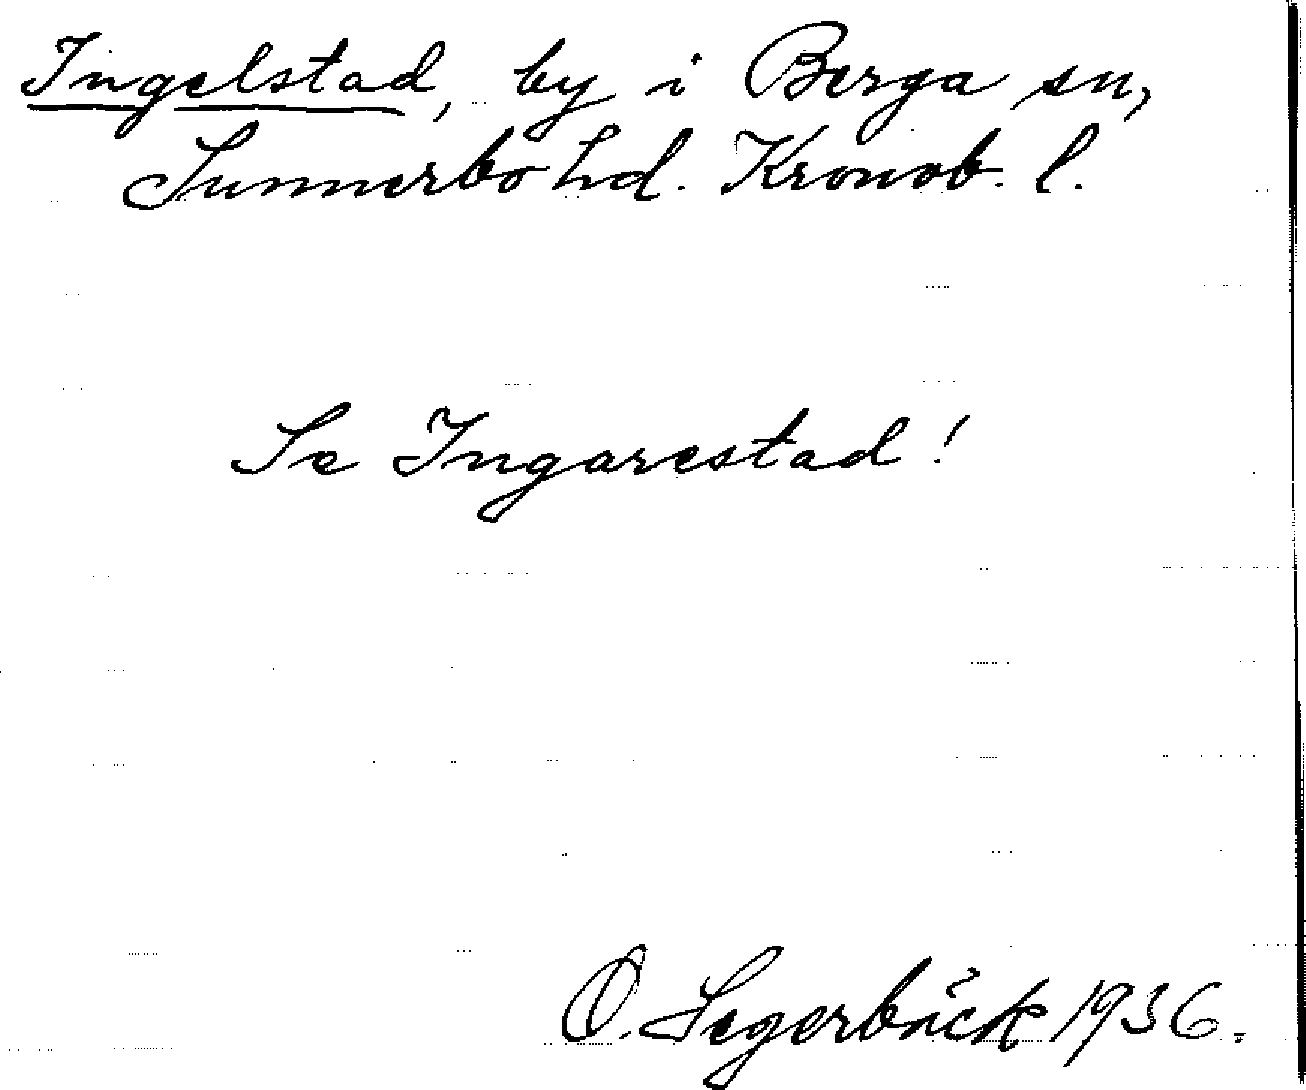 Ingelstad, by i Berga sn,
Sunnerbo hd. Kronob. l.
Se Ingarestad!
O. Segerbäck 1936.